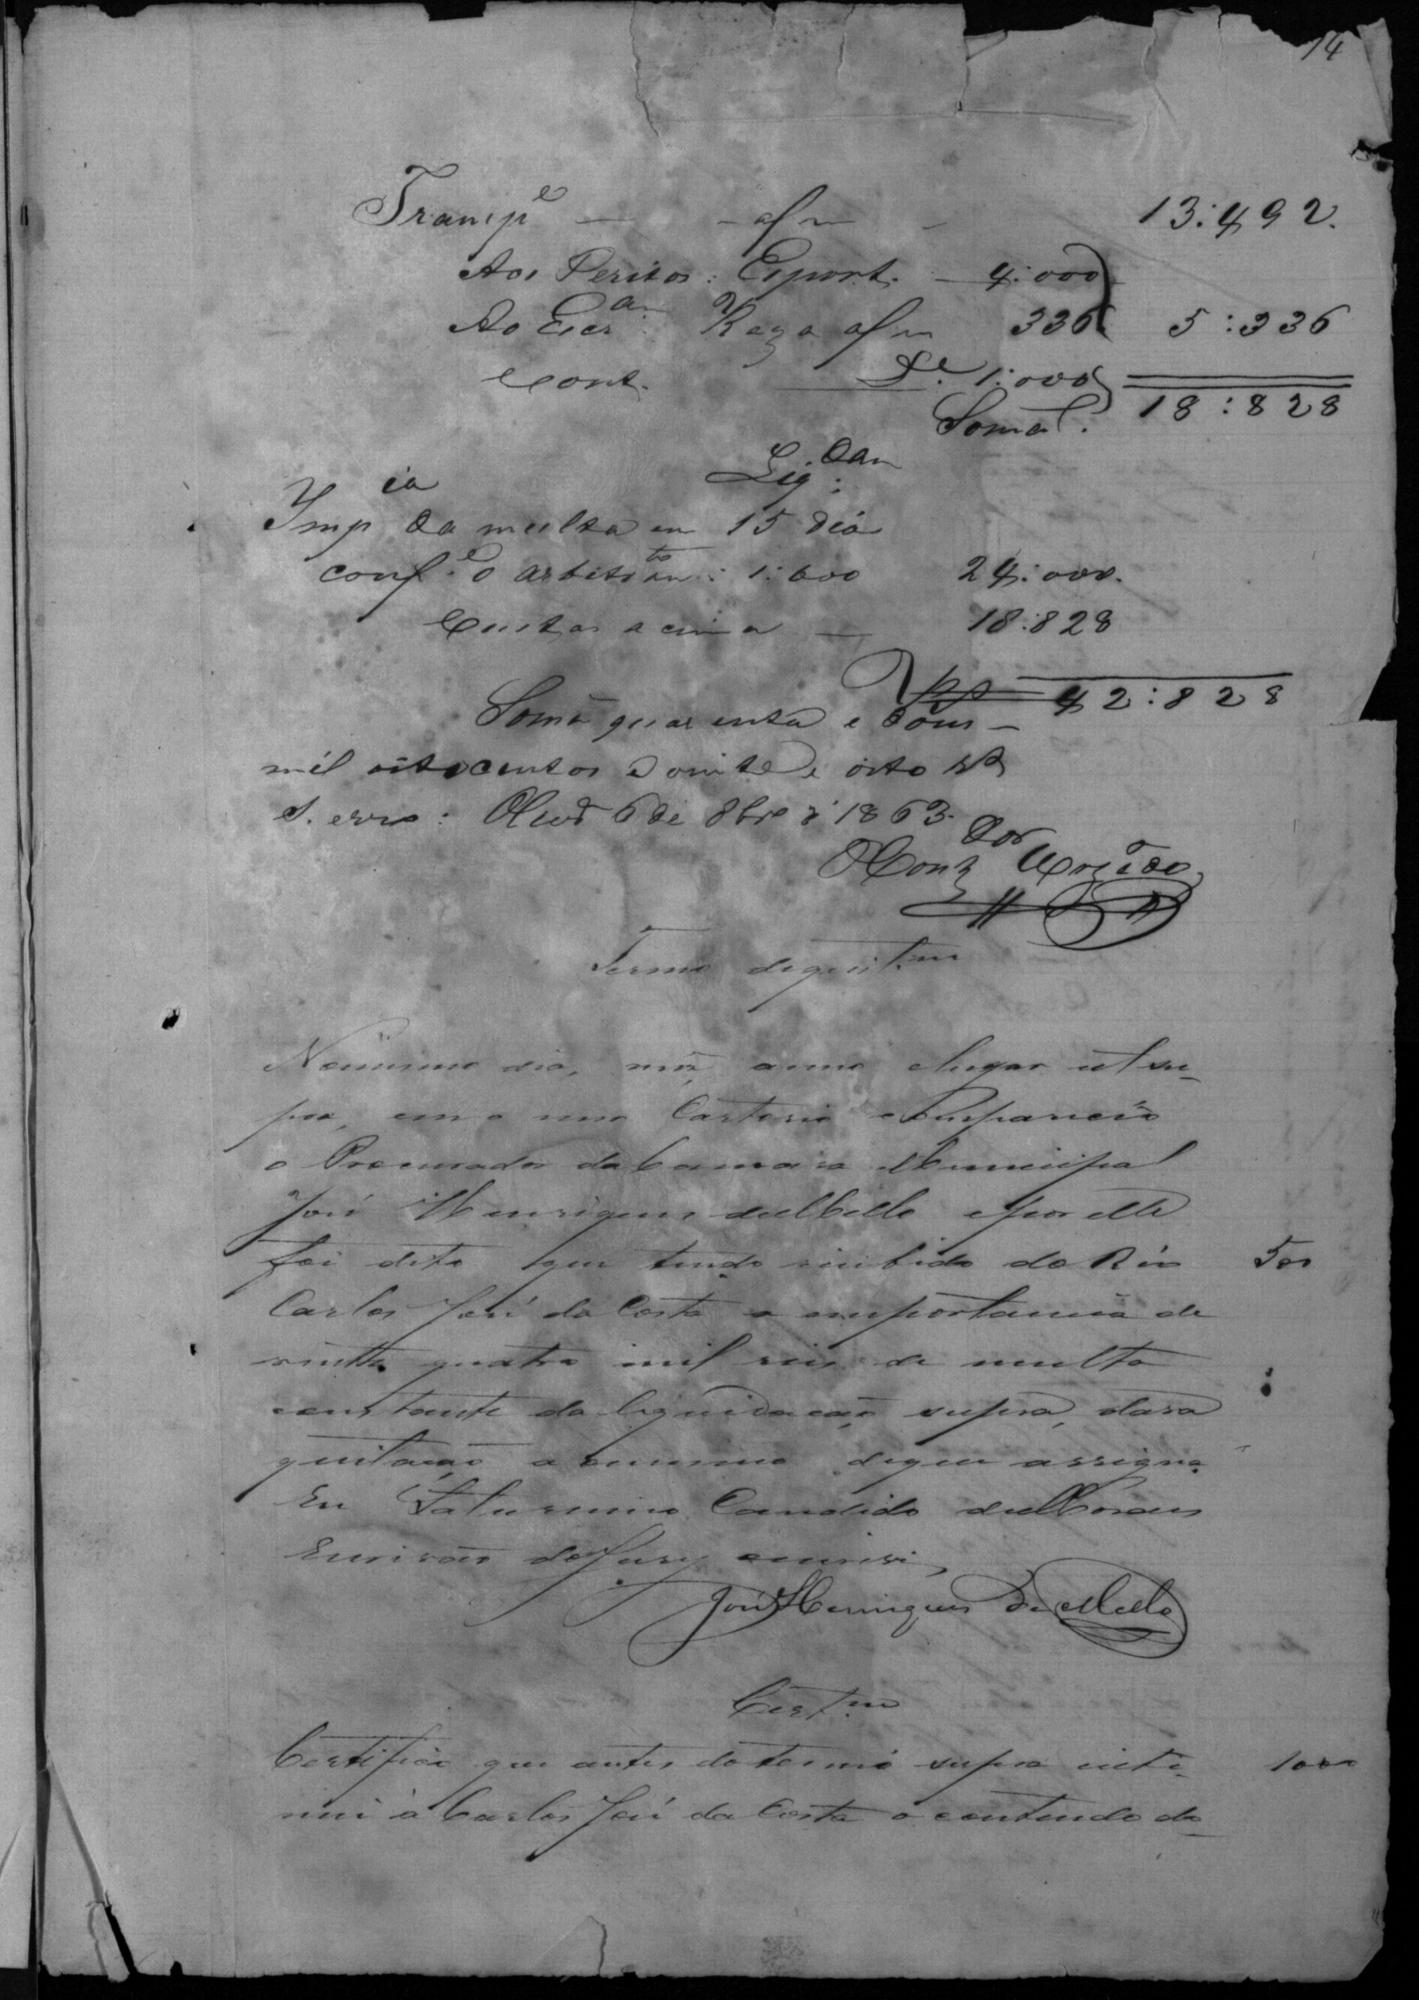 14
Transpe — - afl - 13:492.
Aos Peritos: Esport. — 4:000
Ao Escam. Raza afl 336 5:336
Cont. De. 1:000
Soma. 18:828
Liq.dam
Impcia da multa em 15 dias
confe o arbitramto: 1:600 24:000.
Custas acima — 18:828
42:828
Somã quarenta e dous
mil oitocentos e vinte e oito rs
S. erro: 6 de 8bro d' 1863.
Dor
Termo de quit.am
No mesmo dia, mês, anno e lugar ut su-
pra, em o meu Cartorio compareceo
o Procurador da Camara Municipal
José Henriques de Mello e por elle
foi dito que tendo recebido do Réo 500
Carlos José da Costa a importancia de
vinte quatro mil reis de multa
constante da liquidação supra, dava
quitação ao mesmo de que assigna
Eu Saturnino Candido de Moraes
Escrivão do Jury escrevi,
José Henriques de Mello
Cert.am
Certifico que antes do termo supra inti- 1000
mei a Carlos José da Costa o contendo da